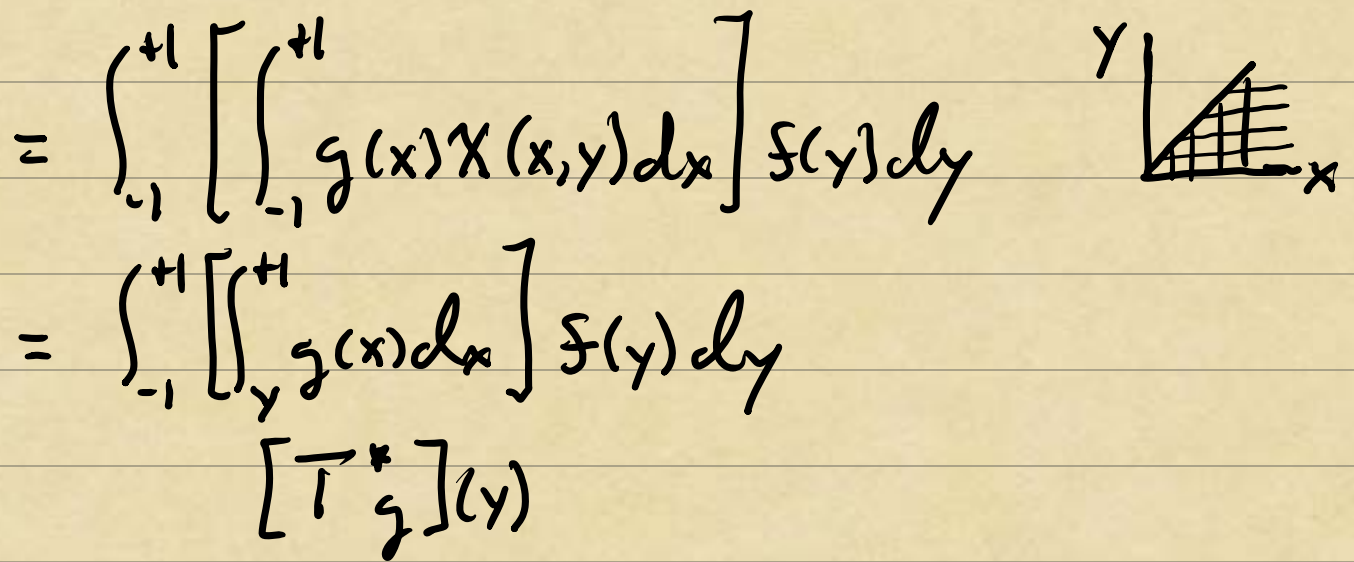 = ∫_{-1}^{+1} [ ∫_{-1}^{+1} g(x) χ(x,y) dx ] f(y) dy
y
x
= ∫_{-1}^{+1} [ ∫_{y}^{+1} g(x) dx ] f(y) dy
[T* g](y)